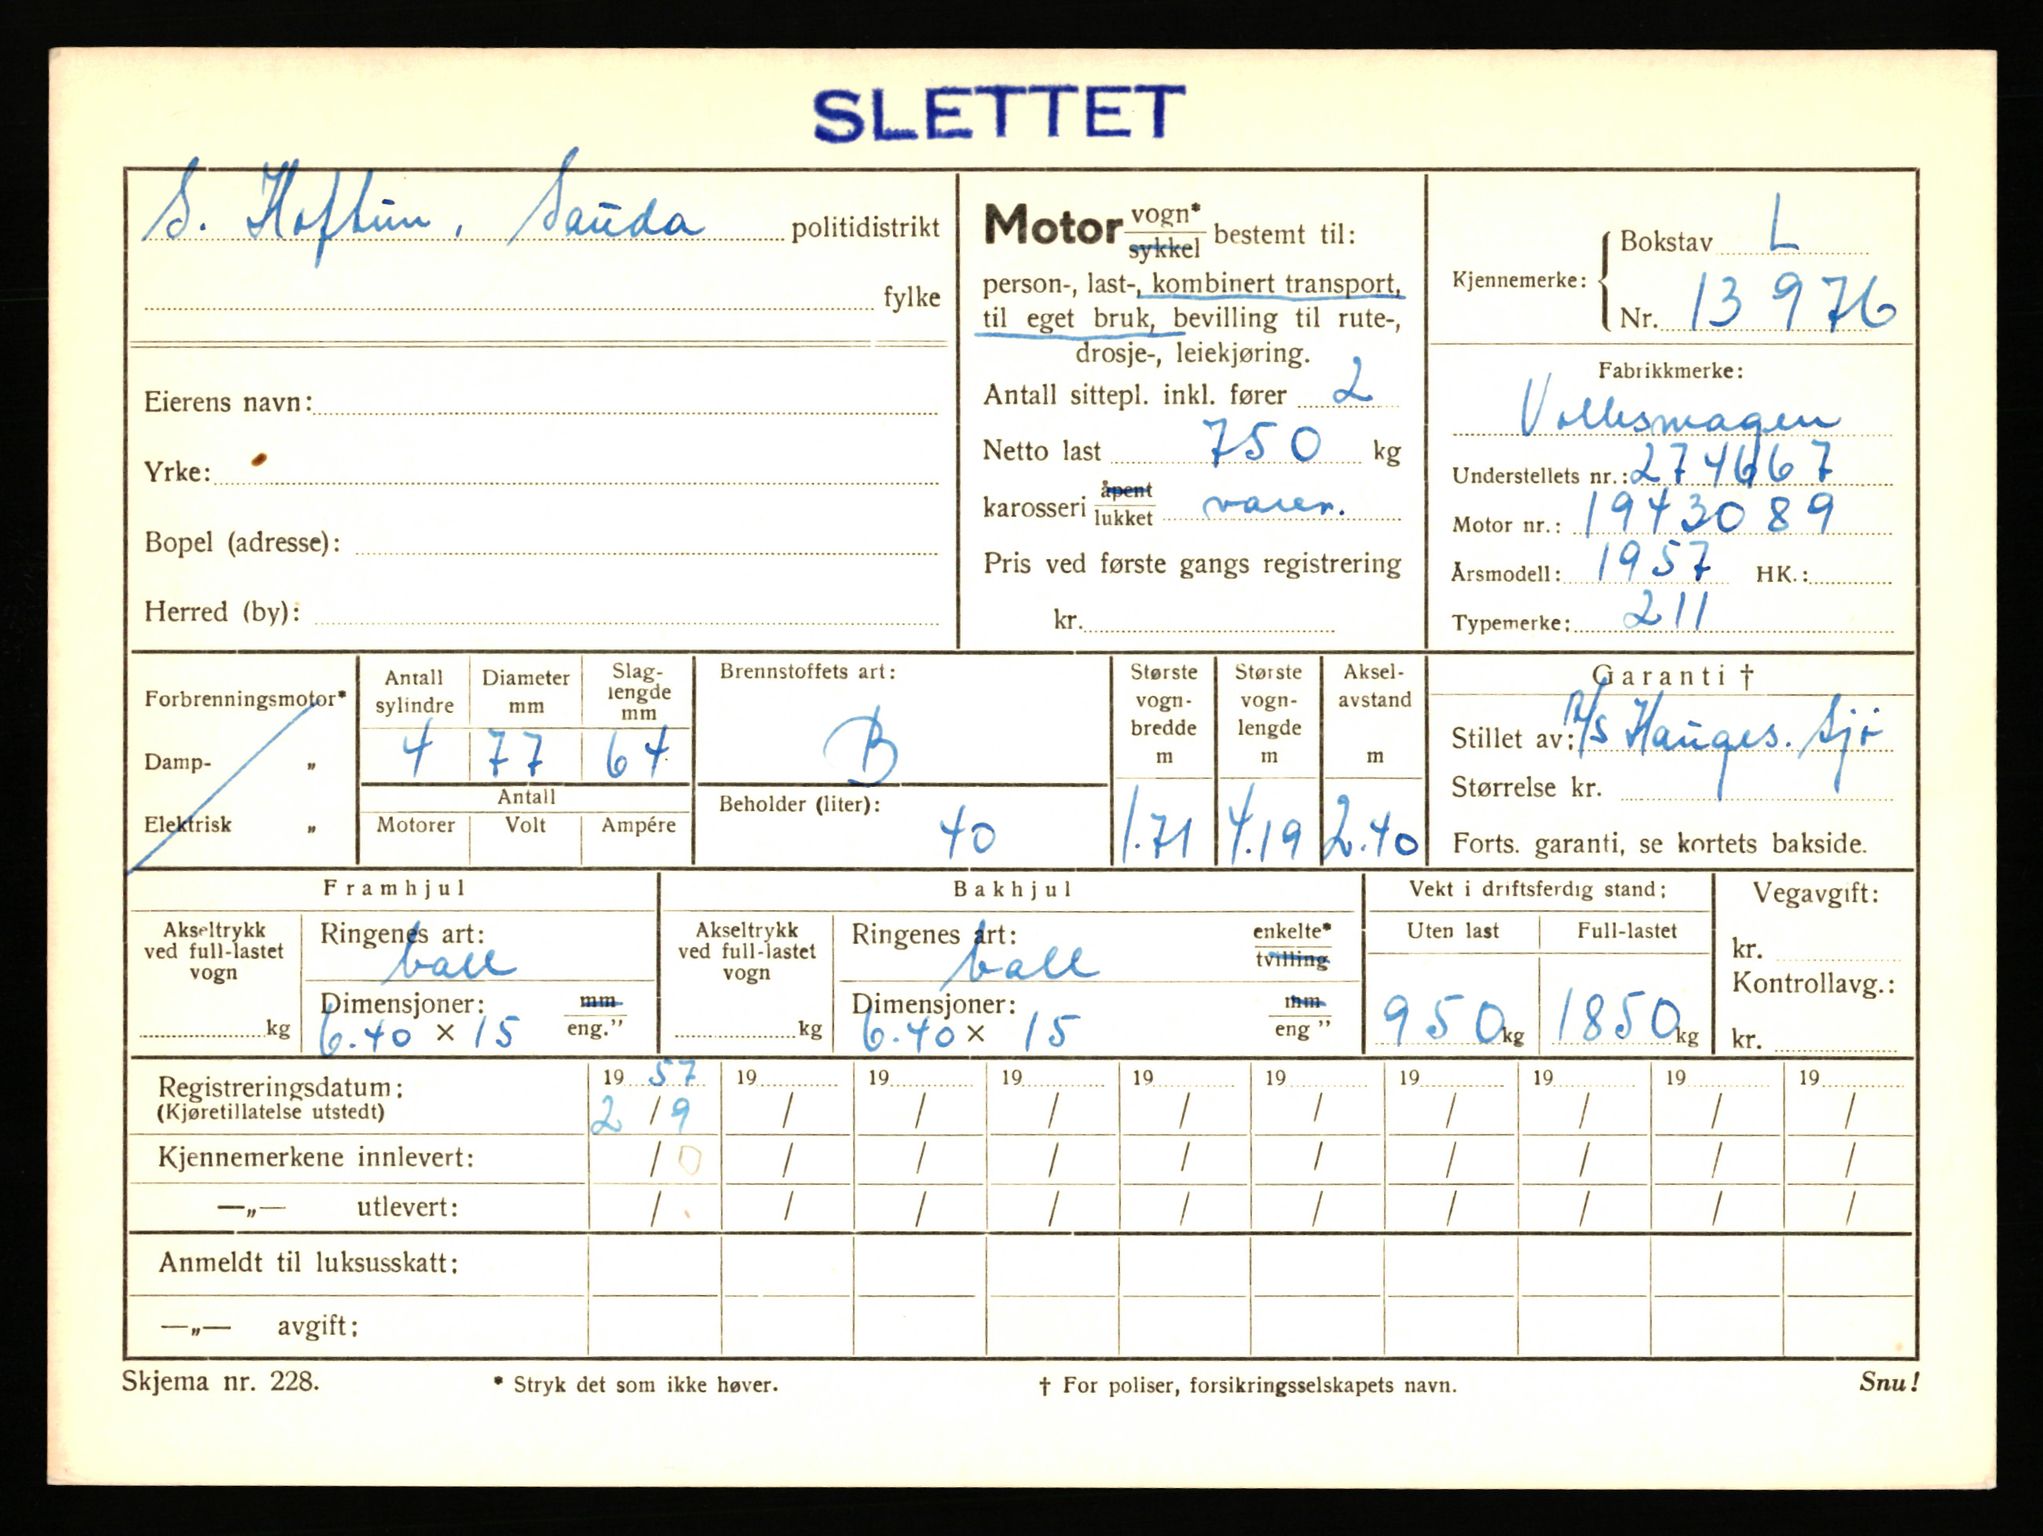 SLETTET
S. Hoftun, Sauda politidistrikt
fylke
Eierens navn:
Yrke:
Bopel (adresse):
Herred (by):
Motor vogn* sykkel bestemt til:
person-, last-, kombinert transport,
til eget bruk, bevilling til rute-,
drosje-, leiekjøring.
Antall sittepl. inkl. fører 2
Netto last 750 kg
karosseri åpent lukket varer.
Pris ved første gangs registrering
kr.
Bokstav L
Kjennemerke:
Nr. 13976
Fabrikkmerke:
Volkswagen
Understellets nr.: 274667
Motor nr.: 1943089
Årsmodell: 1957 HK.:
Typemerke: 211
Forbrenningsmotor*
Damp- „
Elektrisk „
Antall sylindre
Diameter mm
Slag-
lengde
mm
4 77 64
Antall
Motorer Volt Ampére
Brennstoffets art:
B
Beholder (liter):
40
Største
vogn-
bredde
m
1.71
Største
vogn-
lengde
m
4.19
Aksel-
avstand
m
2.40
Garanti †
Stillet av: A/S Hauges. Sjø
Størrelse kr.
Forts. garanti, se kortets bakside.
Framhjul
Akseltrykk
ved full-lastet
vogn
kg
Ringenes art:
ball
Dimensjoner: mm
6.40 × 15 eng.”
Bakhjul
Akseltrykk
ved full-lastet
vogn
kg
Ringenes art: enkelte*
ball tvilling
Dimensjoner: mm
6.40 × 15 eng ”
Vekt i driftsferdig stand:
Uten last Full-lastet
950 kg 1850 kg
Vegavgift:
kr.
Kontrollavg.:
kr.
Registreringsdatum: 19 57 19 19 19 19 19 19 19 19 19
(Kjøretillatelse utstedt) 2 / 9 / / / / / / / / /
Kjennemerkene innlevert: / 0 / / / / / / / / /
—„— utlevert: / / / / / / / / / /
Anmeldt til luksusskatt:
—„— avgift:
Skjema nr. 228. * Stryk det som ikke høver. † For poliser, forsikringsselskapets navn. Snu!